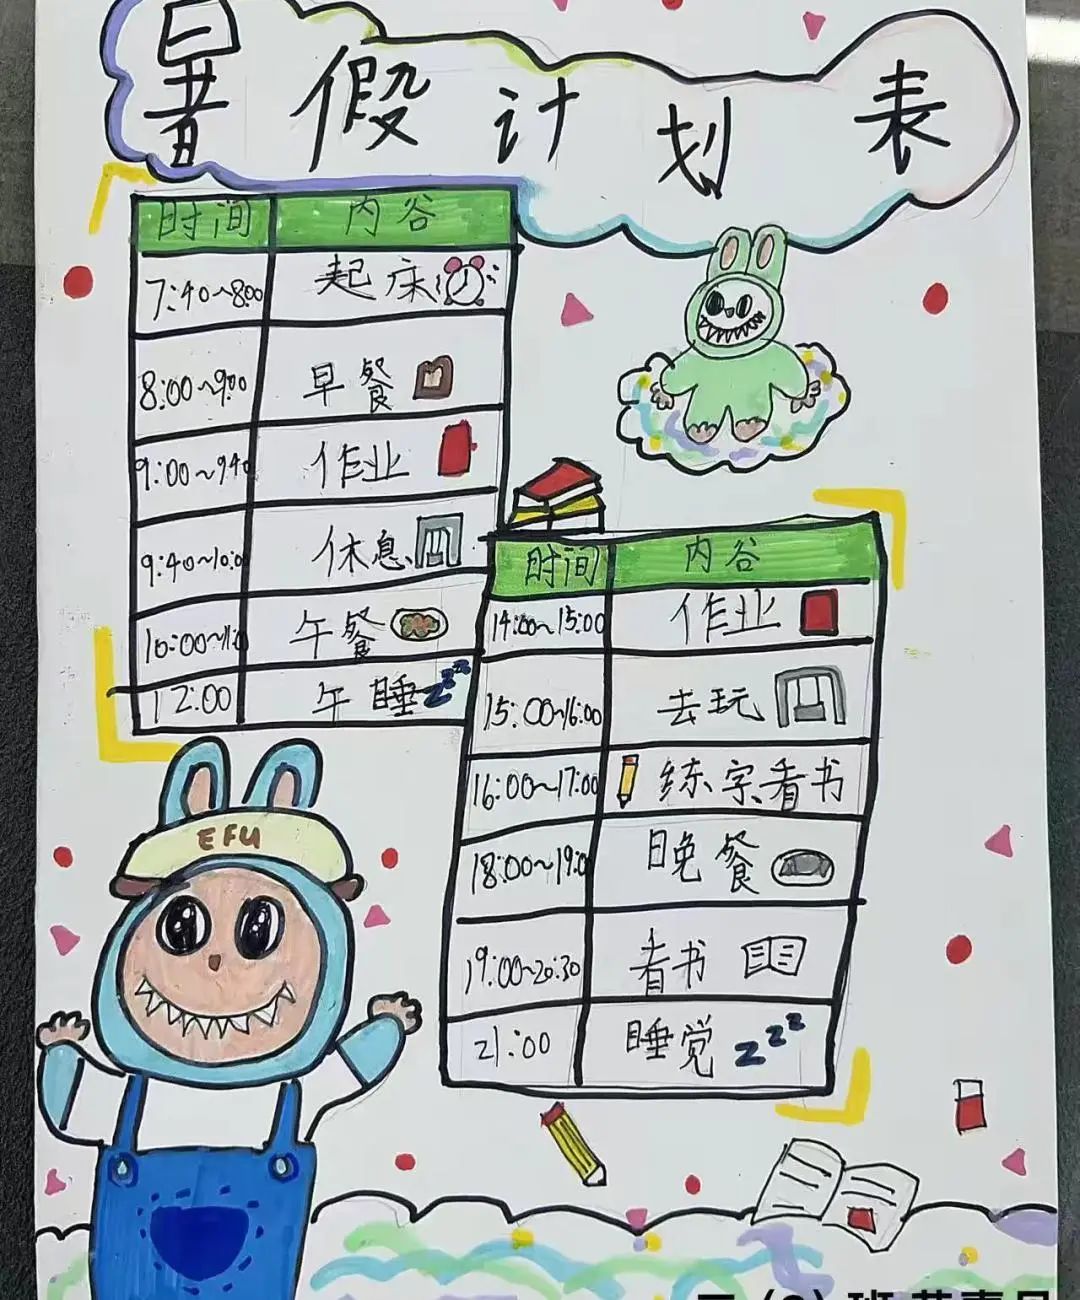 暑假计划表
时间 内谷
7:40~8:00 起床
8:00~9:00 早餐
9:00~9:40 作业
9:40~10:0 休息
10:00~11:0 午餐
12:00 午睡 zzz
时间 内谷
14:00~15:00 作业
15:00~16:00 去玩
16:00~17:00 练字、看书
18:00~19:0 晚餐
19:00~20:30 看书
21:00 睡觉 zzz
EFU